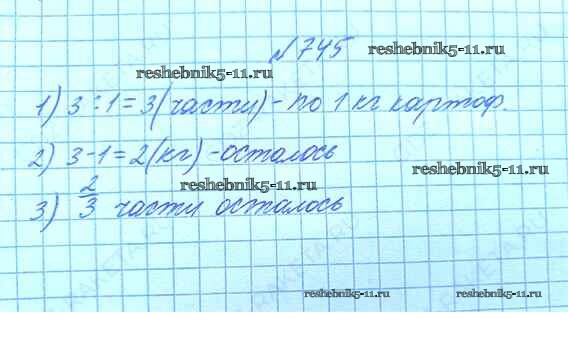 №745
reshebnik5-11.ru
reshebnik5-11.ru
1) 3:1=3(части)-по 1 кг картоф.
2) 3-1=2(кг)-осталось
reshebnik5-11.ru
reshebnik5-11.ru
3) 2/3 части осталось
reshebnik5-11.ru
reshebnik5-11.ru